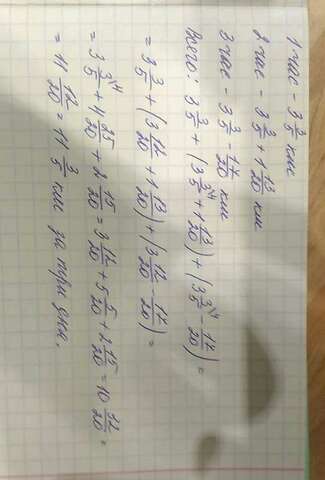 1 час - 3 3/5 км
2 час - 3 3/5 + 1 13/20 км
3 час - 3 3/5 - 17/20 км
Всего: 3 3/5 + (3 3/5 \4 + 1 13/20) + (3 3/5 \4 - 17/20) =
= 3 3/5 + (3 12/20 + 1 13/20) + (3 12/20 - 17/20) =
= 3 3/5 \4 + 4 25/20 + 2 15/20 = 3 12/20 + 5 5/20 + 2 15/20 = 10 32/20 =
= 11 12/20 = 11 3/5 км за три дня.